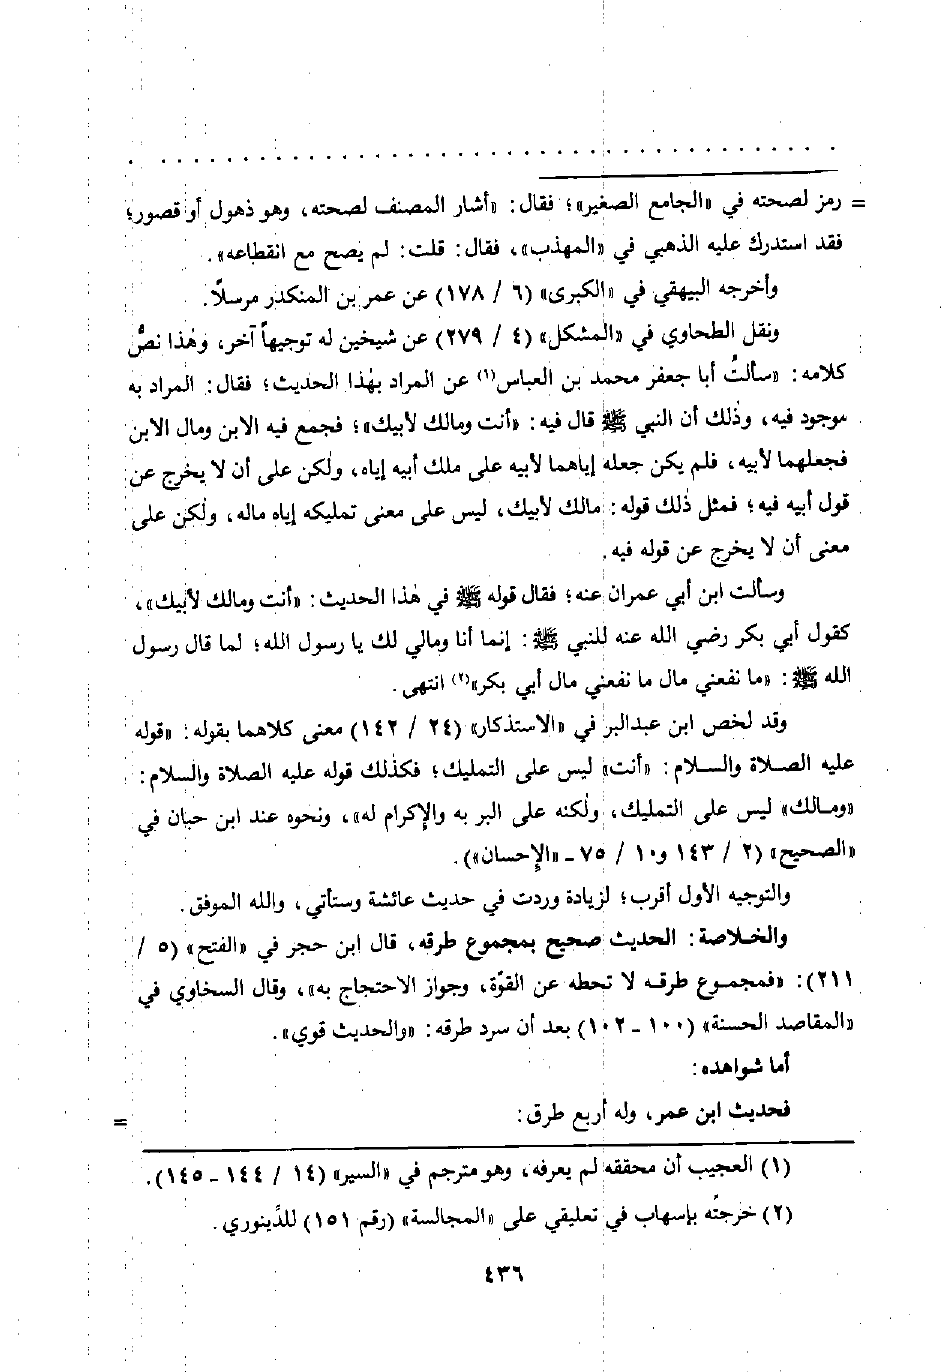 = رمز لصحته في «الجامع الصغير»؛ فقال: «أشار المصنف لصحته، وهو ذهول أو قصور؛
فقد استدرك عليه الذهبي في «المهذب»، فقال: قلت: لم يصح مع انقطاعه».
وأخرجه البيهقي في «الكبرى» (٦ / ١٧٨) عن عمر بن المنكدر مرسلاً.
ونقل الطحاوي في «المشكل» (٤ / ٢٧٩) عن شيخين له توجيهاً آخر، وهٰذا نصُّ
كلامه: «سألتُ أبا جعفر محمد بن العباس(١) عن المراد بهٰذا الحديث؛ فقال: المراد به
موجود فيه، وذٰلك أن النبي ﷺ قال فيه: «أنت ومالك لأبيك»؛ فجمع فيه الابن ومال الابن
فجعلهما لأبيه، فلم يكن جعله إياهما لأبيه على ملك أبيه إياه، ولٰكن على أن لا يخرج عن
قول أبيه فيه؛ فمثل ذٰلك قوله: مالك لأبيك، ليس على معنى تمليكه إياه ماله، ولٰكن على
معنى أن لا يخرج عن قوله فيه.
وسألت ابن أبي عمران عنه؛ فقال قوله ﷺ في هٰذا الحديث: «أنت ومالك لأبيك»،
كقول أبي بكر رضي الله عنه للنبي ﷺ: إنما أنا ومالي لك يا رسول الله؛ لما قال رسول
الله ﷺ: «ما نفعني مال ما نفعني مال أبي بكر»(٢) انتهى.
وقد لخص ابن عبدالبر في «الاستذكار» (٢٤ / ١٤٢) معنى كلاهما بقوله: «قوله
عليه الصلاة والسلام: «أنت» ليس على التمليك؛ فكذٰلك قوله عليه الصلاة والسلام:
«ومالك» ليس على التمليك، ولٰكنه على البر به والإكرام له»، ونحوه عند ابن حبان في
«الصحيح» (٢ / ١٤٣ و١٠ / ٧٥ - «الإحسان»).
والتوجيه الأول أقرب؛ لزيادة وردت في حديث عائشة وستأتي، والله الموفق.
والخلاصة: الحديث صحيح بمجموع طرقه، قال ابن حجر في «الفتح» (٥ /
٢١١): «فمجموع طرقه لا تحطه عن القوّة، وجواز الاحتجاج به»، وقال السخاوي في
«المقاصد الحسنة» (١٠٠ - ١٠٢) بعد أن سرد طرقه: «والحديث قوي».
أما شواهده:
فحديث ابن عمر، وله أربع طرق: =
(١) العجيب أن محققه لم يعرفه، وهو مترجم في «السير» (١٤ / ١٤٤ - ١٤٥).
(٢) خرجته بإسهاب في تعليقي على «المجالسة» (رقم ١٥١) للدِّينوري.
٤٣٦